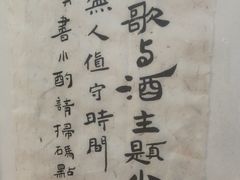 歌与酒主題小
無人值守時間
書小酌請掃碼點